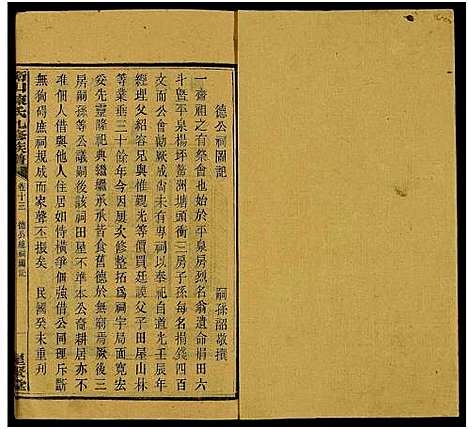 德公祠圖記
嗣孫韶敬撰
一齋祖之有祭會也始於平泉房烈名翁遺命捐田六
斗暨平泉楊坪鰲洲塘頭衝三房子孫每名捐錢四百
文而公會成厥後歲尚未有專祠以奉祀自道光壬辰
經理父紹容兄與惟觀光等價接父子田屋山林
等業垂三十餘年今冬歷次修整拓爲祠宇局面寬宏
妥先靈隆祀典繼繼承承昔食舊德於無窮焉厥後三
房嗣孫等公議嗣後該祠田屋不準本公裔耕居亦不
准個人借與他人住居如恃橫爭個強借公同理斥斷
無狥碍庶祠規而家聲不振矣　民國癸未重刋
氏九修族譜
卷十三
德公祠圖記